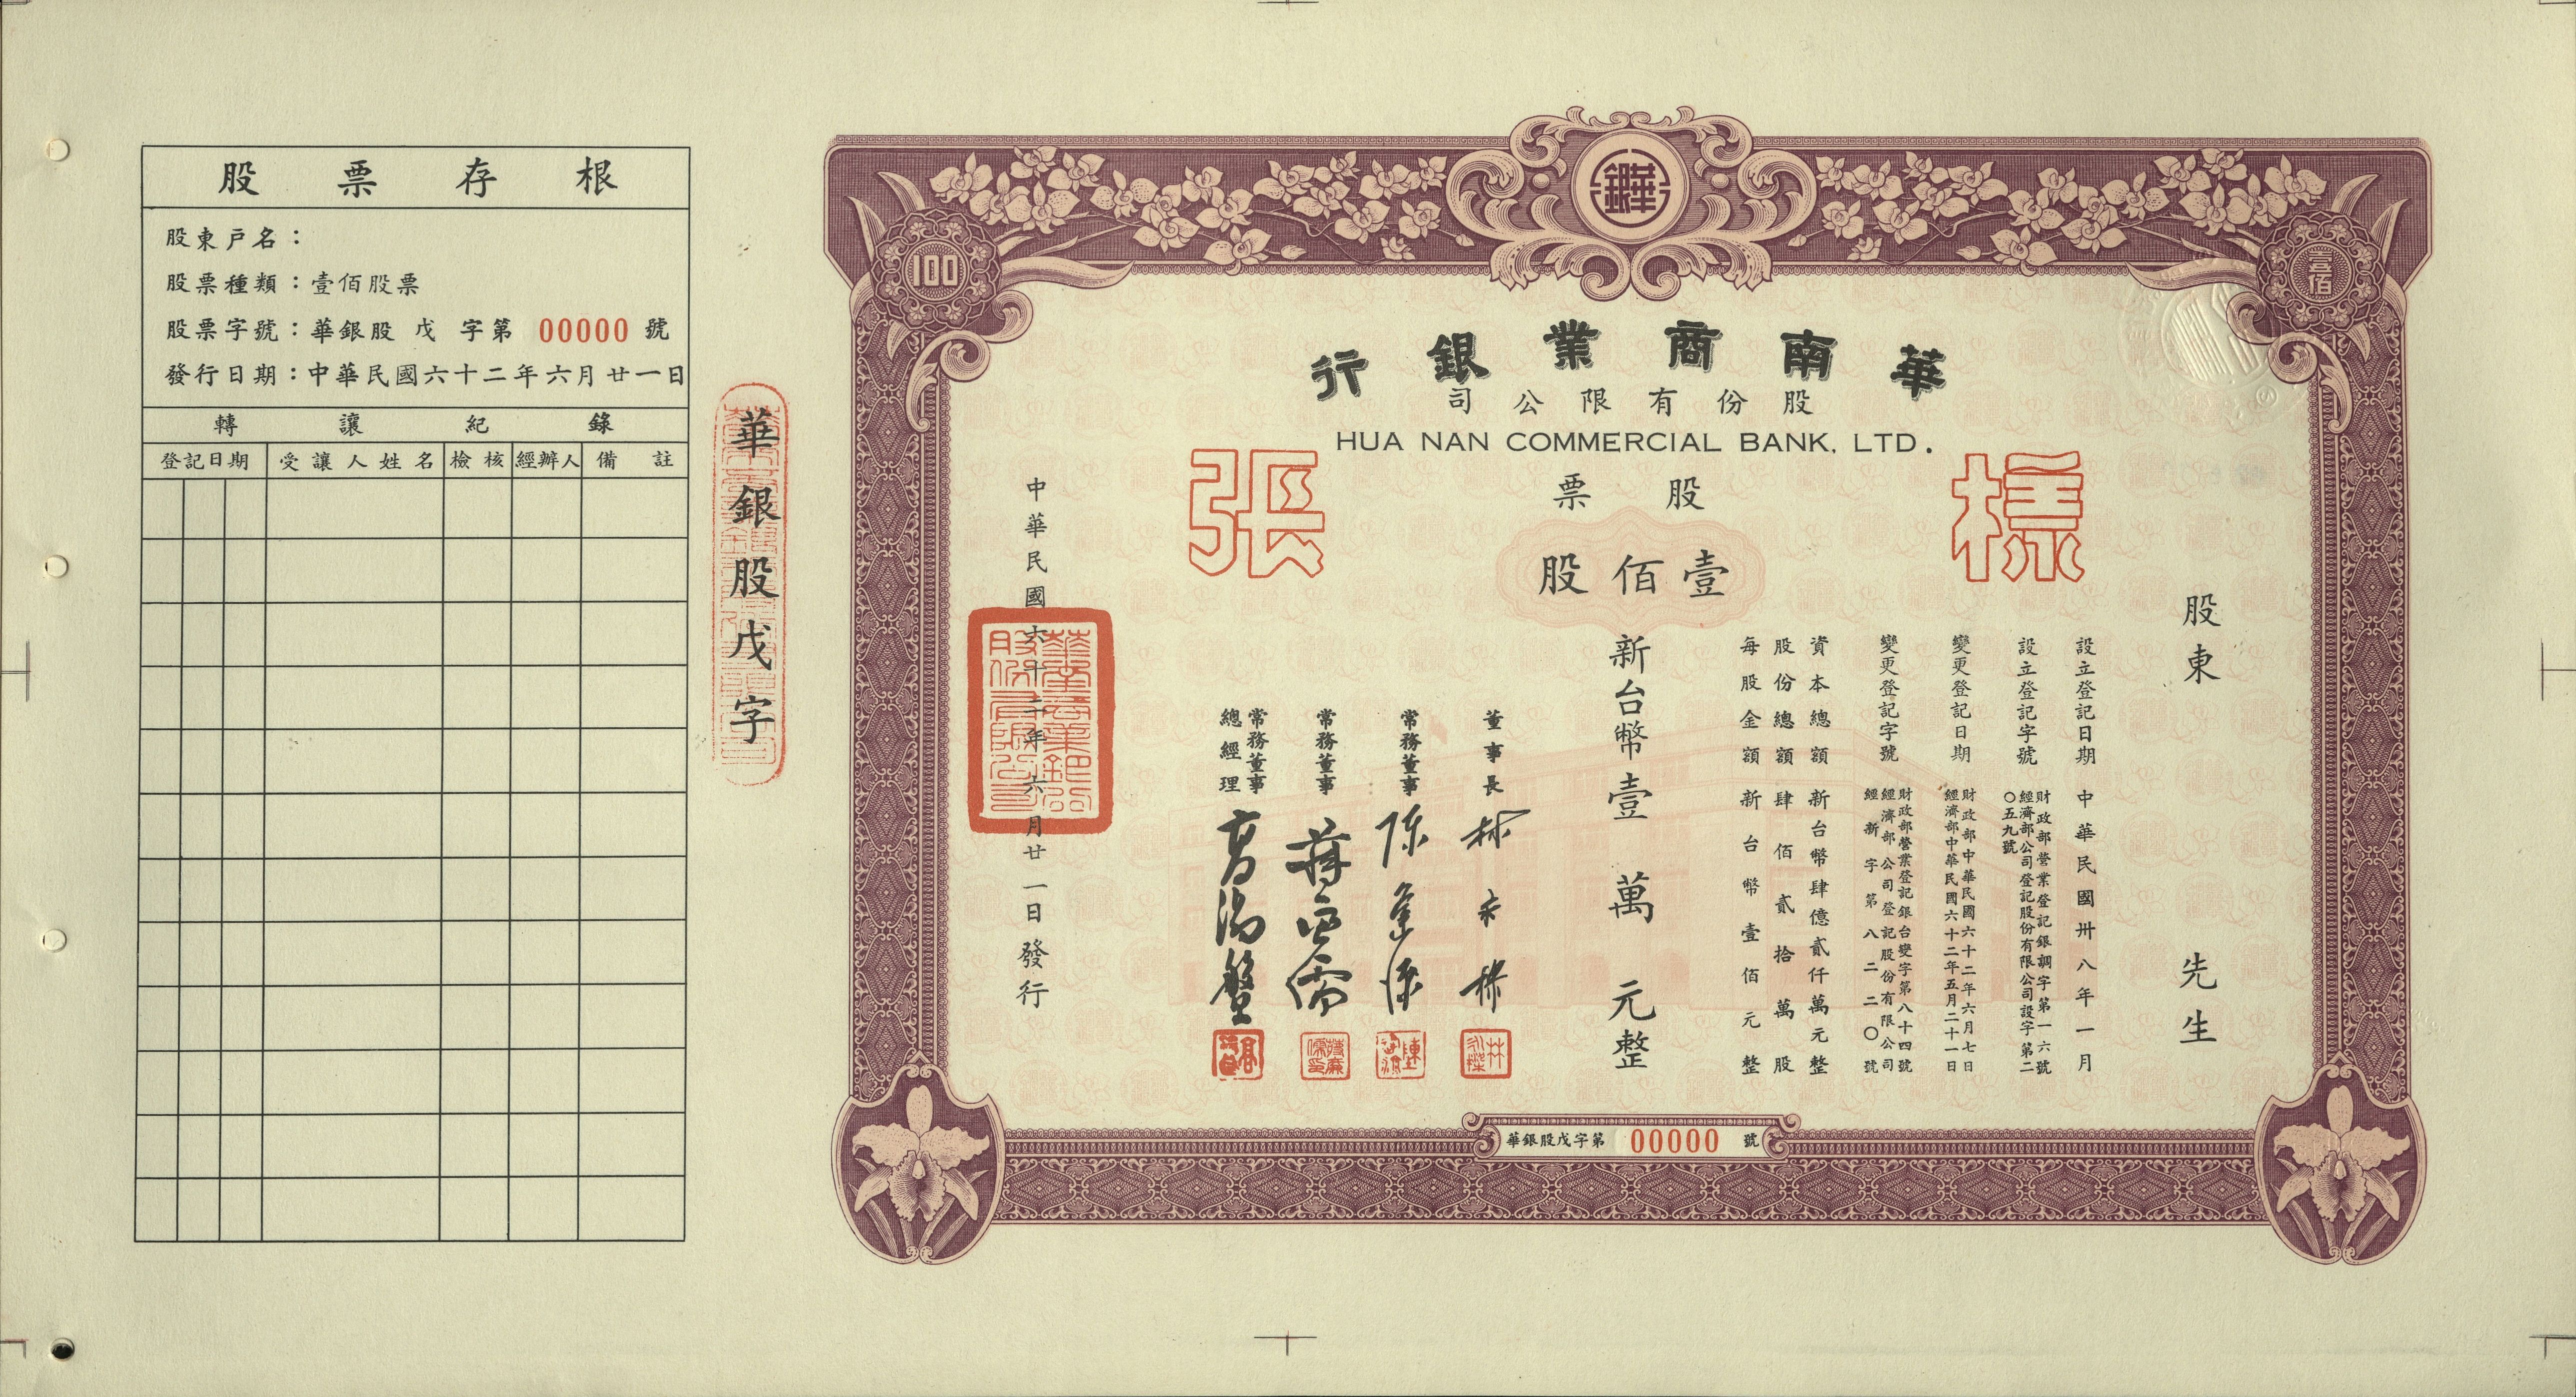 股票存根
股東戶名：
股票種類：壹佰股票
股票字號：華銀股 戊 字第 00000 號
發行日期：中華民國六十二年六月廿一日
轉讓紀錄
登記日期 受讓人姓名 檢核 經辦人 備註
華銀股戊字
100
華銀
壹佰
華南商業銀行
股份有限公司
HUA NAN COMMERCIAL BANK, LTD.
樣張
股票
壹佰股
股東 先生
設立登記日期 中華民國卅八年一月
設立登記字號 財政部營業登記銀調字第一六號
經濟部公司登記股份有限公司設字第二
〇五九號
變更登記日期 財政部中華民國六十二年六月七日
經濟部中華民國六十二年五月二十一日
變更登記字號 財政部營業登記銀台變字第八十四號
經濟部公司登記股份有限公司
經新字第八二二〇號
資本總額 新台幣肆億貳仟萬元整
股份總額 肆佰貳拾萬股
每股金額 新台幣壹佰元整
新台幣壹萬元整
董事長
常務董事
常務董事
常務董事
總經理
中華民國六十二年六月廿一日發行
華南商業銀行股份有限公司
華銀股戊字第 00000 號